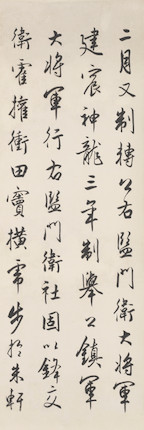 二月又制轉公右監門衛大將軍
建宸神龍三年制舉公鎮軍
大將軍行右監門衛社固以鋒交
衛霍權衝田竇橫弗步於朱軒